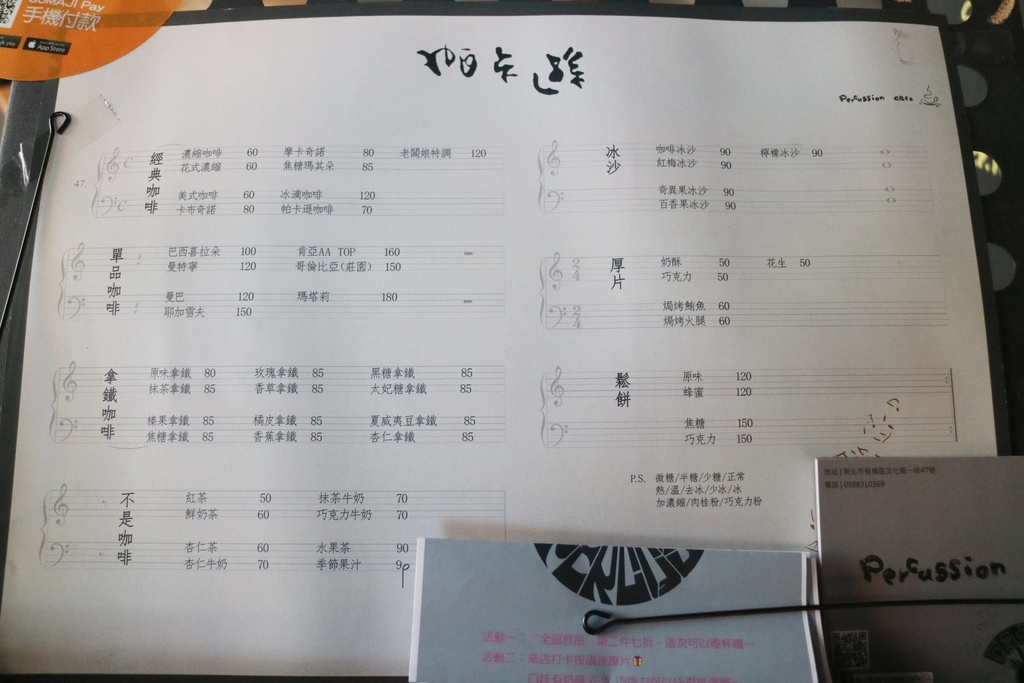 Pay
手機付款
App Store
帕卡遜
Percussion cafe
47.
經典咖啡
濃縮咖啡 60 摩卡奇諾 80 老闆娘特調 120
花式濃縮 60 焦糖瑪其朵 85
美式咖啡 60 冰滴咖啡 120
卡布奇諾 80 帕卡遜咖啡 70
單品咖啡
巴西喜拉朵 100 肯亞AA TOP 160
曼特寧 120 哥倫比亞(莊園) 150
曼巴 120 瑪塔莉 180
耶加雪夫 150
拿鐵咖啡
原味拿鐵 80 玫瑰拿鐵 85 黑糖拿鐵 85
抹茶拿鐵 85 香草拿鐵 85 太妃糖拿鐵 85
榛果拿鐵 85 橘皮拿鐵 85 夏威夷豆拿鐵 85
焦糖拿鐵 85 香蕉拿鐵 85 杏仁拿鐵 85
不是咖啡
紅茶 50 抹茶牛奶 70
鮮奶茶 60 巧克力牛奶 70
杏仁茶 60 水果茶 90
杏仁牛奶 70 季節果汁 90
冰沙
咖啡冰沙 90 檸檬冰沙 90
紅梅冰沙 90
奇異果冰沙 90
百香果冰沙 90
厚片
奶酥 50 花生 50
巧克力 50
焗烤鮪魚 60
焗烤火腿 60
鬆餅
原味 120
蜂蜜 120
焦糖 150
巧克力 150
P.S. 微糖/半糖/少糖/正常
熱/溫/去冰/少冰/冰
加濃縮/肉桂粉/巧克力粉
地址|新北市板橋區文化路一段47號
電話|0988310369
Percussion
活動一："全品飲品"第二件七折，這次可以寄杯喔~
活動二：來店打卡按讚送厚片